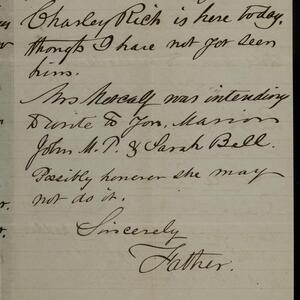 Charley Rich is here today,
though I have not yet seen
him.
Mrs Metcalf was intending
to write to you, Marion
John M. P. & Sarah Bell.
Possibly however she may
not do it.
Sincerely
Father.